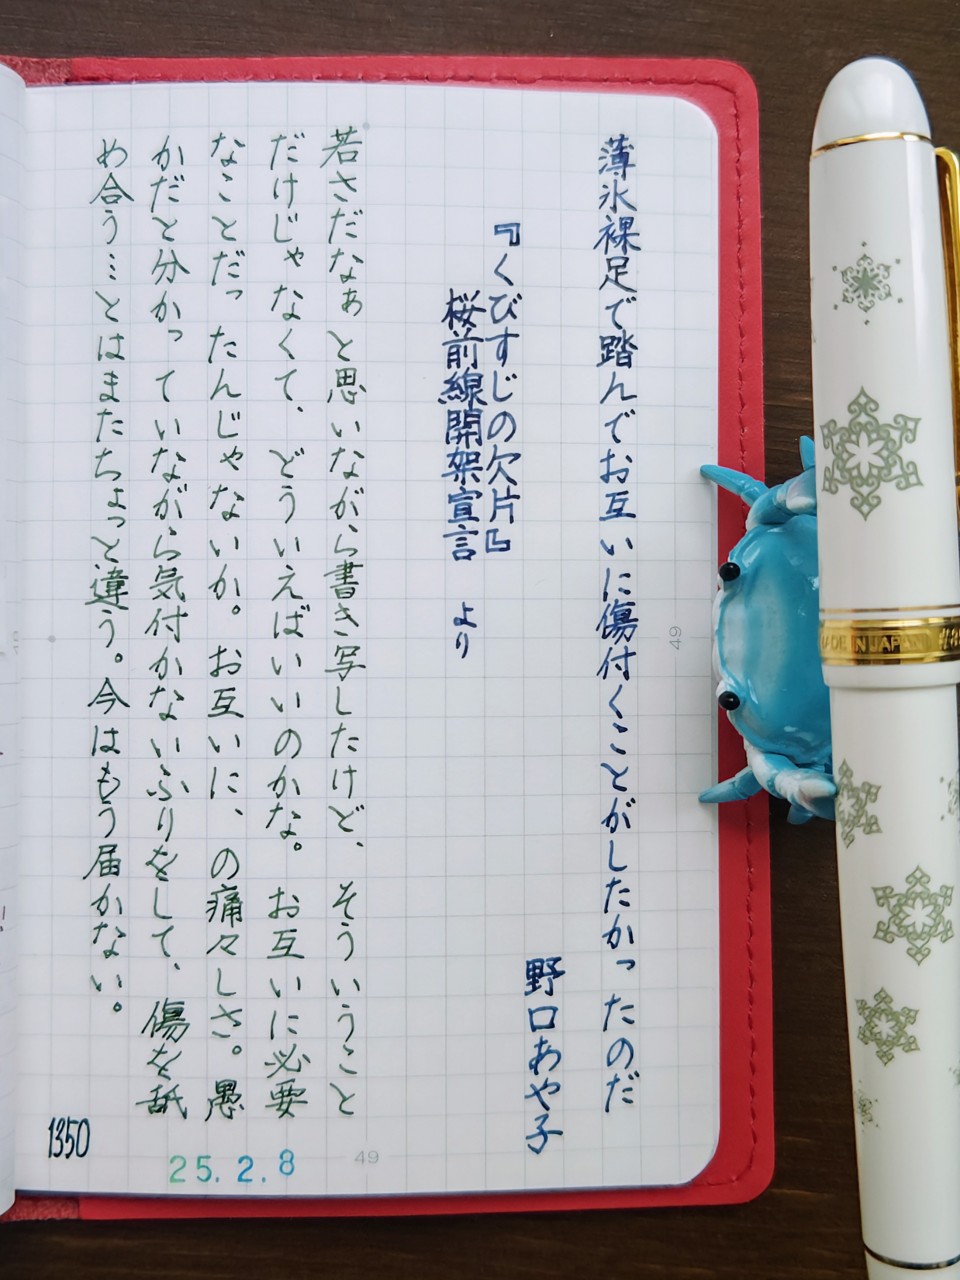 薄氷裸足で踏んでお互いに傷付くことがしたかったのだ
野口あや子
『くびすじの欠片』
桜前線開架宣言 より
若さだなぁと思いながら書き写したけど、そういうこと
だけじゃなくて、どういえばいいのかな。お互いに必要
なことだったんじゃないか。お互いに、の痛々しさ。愚
かだと分かっていながら気付かないふりをして、傷を舐
め合う…とはまたちょっと違う。今はもう届かない。
1350
25.2.8
49
49
MADE IN JAPAN